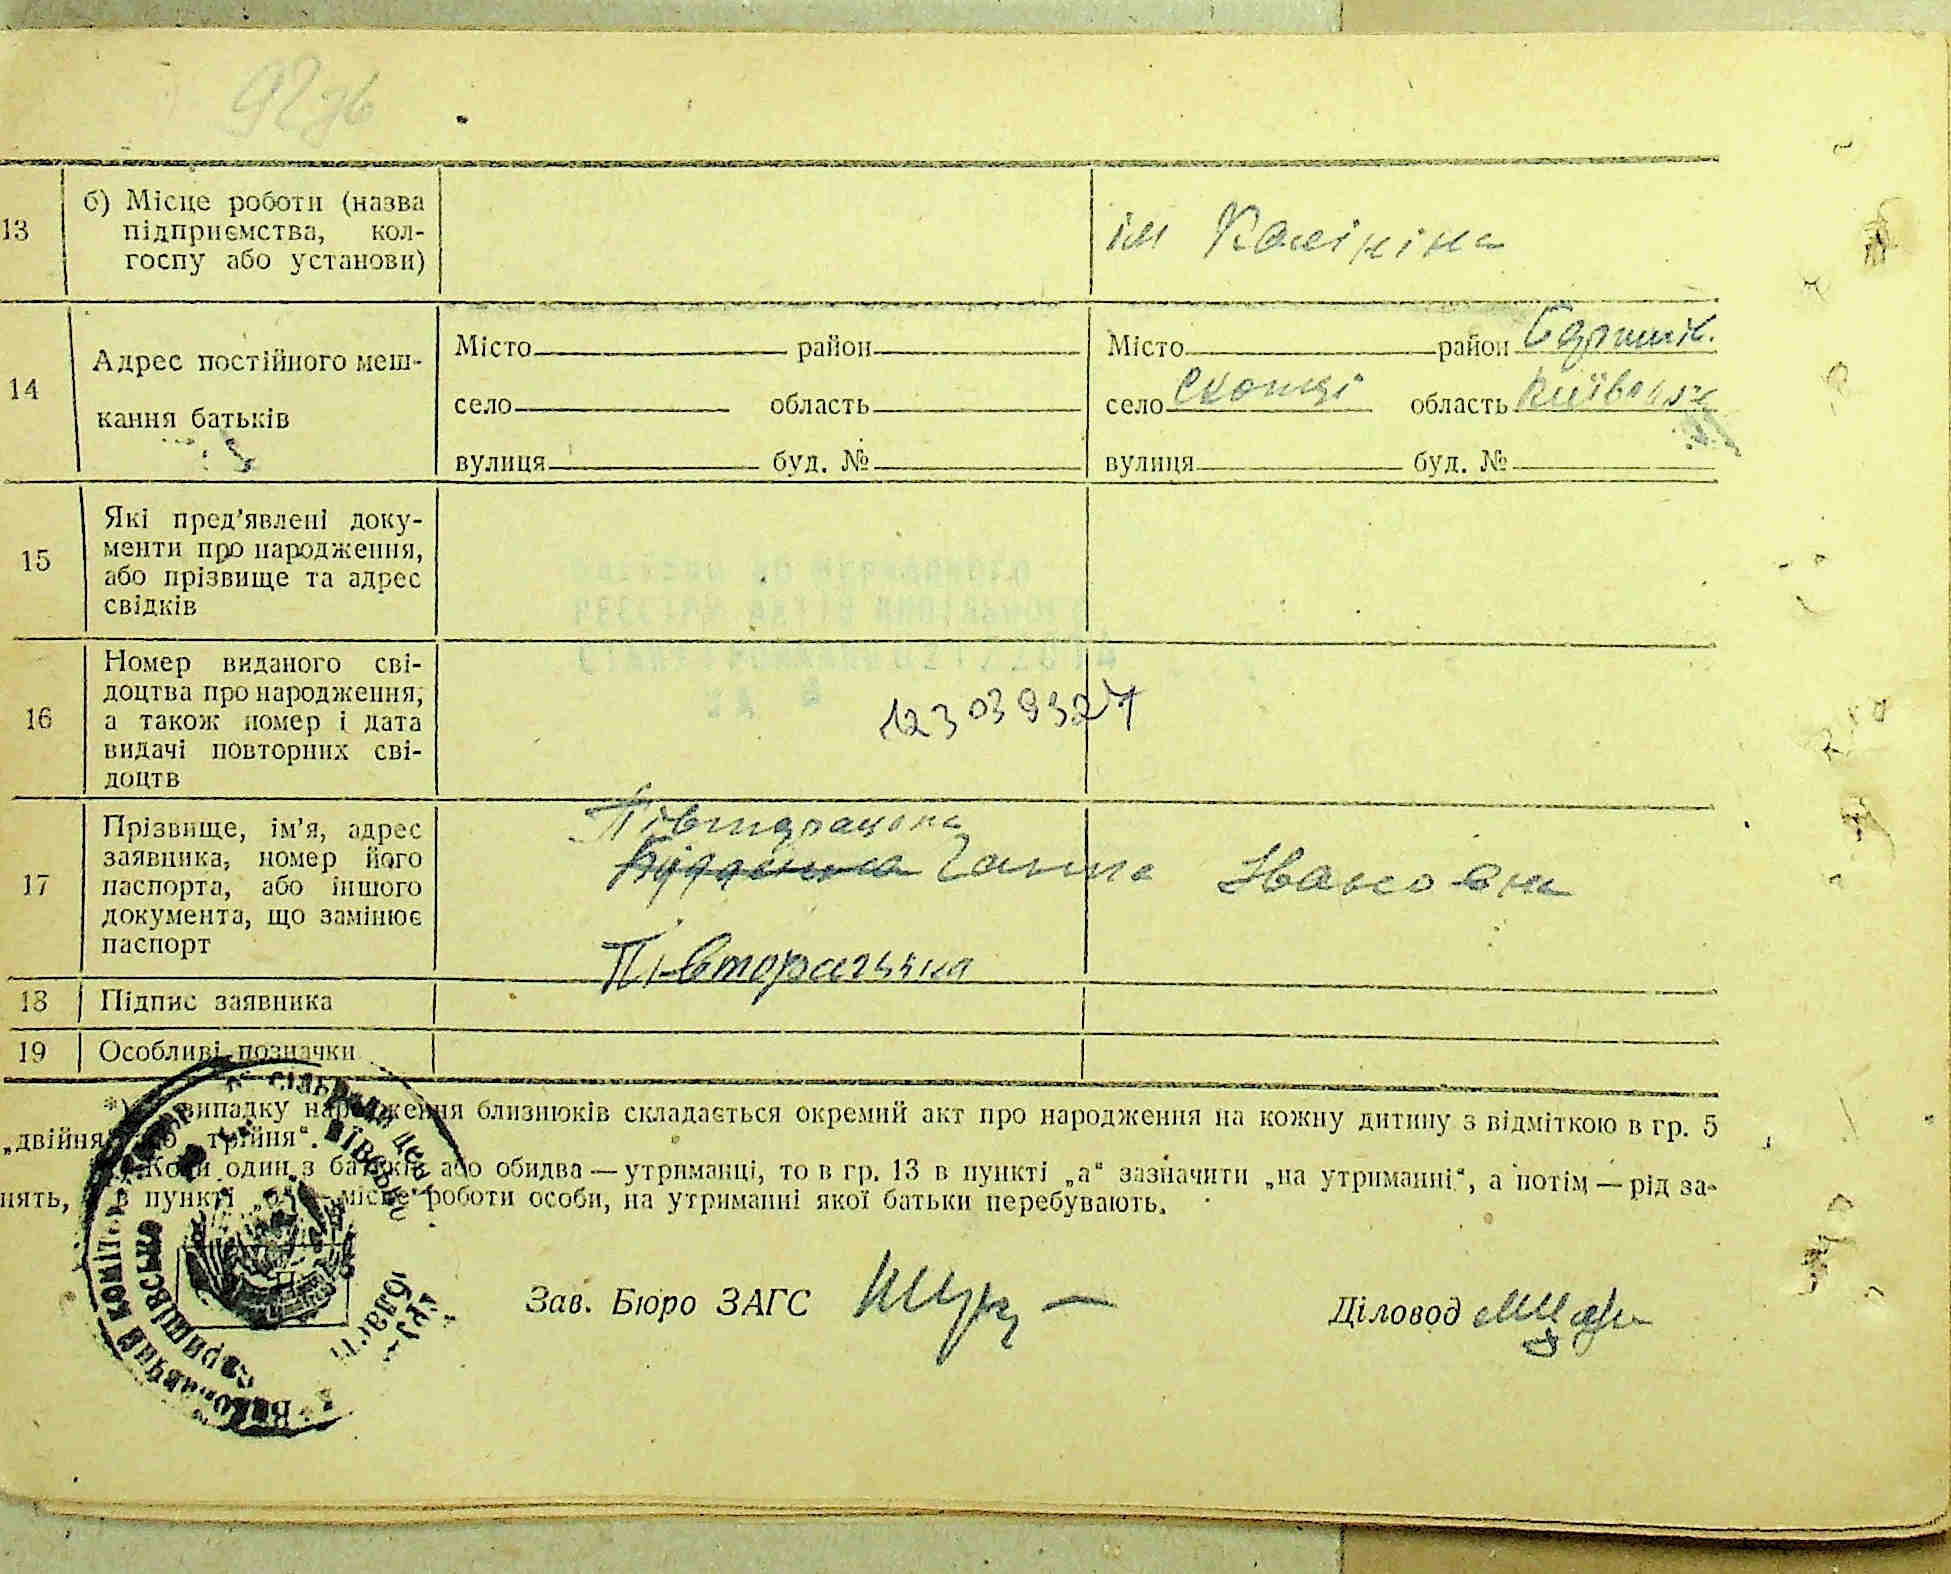 92зв
13
б) Місце роботи (назва
підприємства, кол-
госпу або установи)
ім Калініна
14
Адрес постійного меш-
кання батьків
Місто район
село область
вулиця буд. №
Місто район Бориспів.
село Скопці область Київська
вулиця буд. №
15
Які пред'явлені доку-
менти про народження,
або прізвище та адрес
свідків
16
Номер виданого сві-
доцтва про народження,
а також номер і дата
видачі повторних сві-
доцтв
17
Прізвище, ім'я, адрес
заявника, номер його
паспорта, або іншого
документа, що замінює
паспорт
Ганна Івановна
18
Підпис заявника
19
Особливі позначки
*) випадку народження близнюків складається окремий акт про народження на кожну дитину з відміткою в гр. 5
„двійня" або трійня".
Коли один з батьків або обидва — утриманці, то в гр. 13 в пункті „а" зазначити „на утриманні", а потім — рід за-
нять, в пункті „б" — місце роботи особи, на утриманні якої батьки перебувають.
Зав. Бюро ЗАГС
Діловод